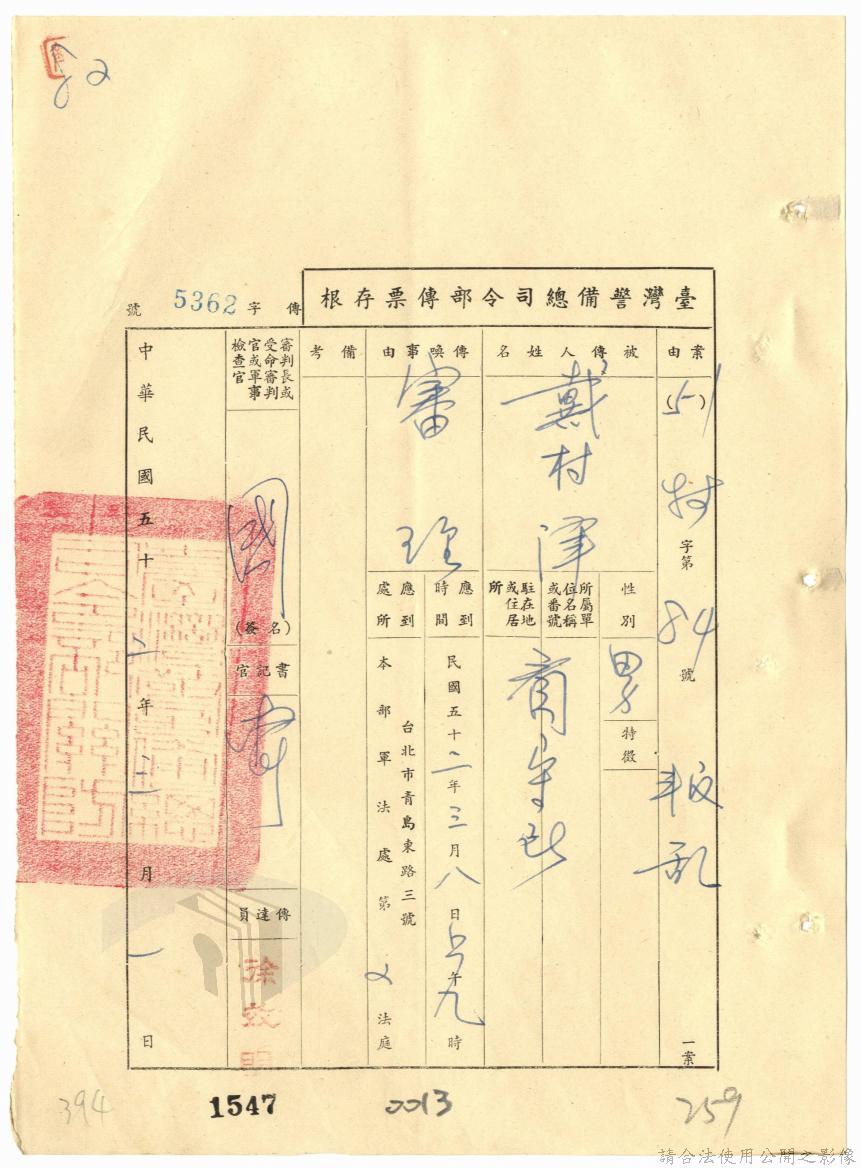 臺灣警備總司令部傳票存根
案由
(51)
字第
84
號
叛乱
一案
被傳人姓名
戴村澤
性別
男
特徵
所屬單位名稱或番號
駐在地或住居所
傳喚事由
審理
應到時間
民國五十二年三月八日上午九時
應到處所
本部軍法處第
法庭
台北市青島東路三號
備考
傳字
5362
號
審判長或受命審判官或軍事檢查官
(簽名)
書記官
傳達員
中華民國五十二年三月一日
394
1547
0013
259
請合法使用公開之影像